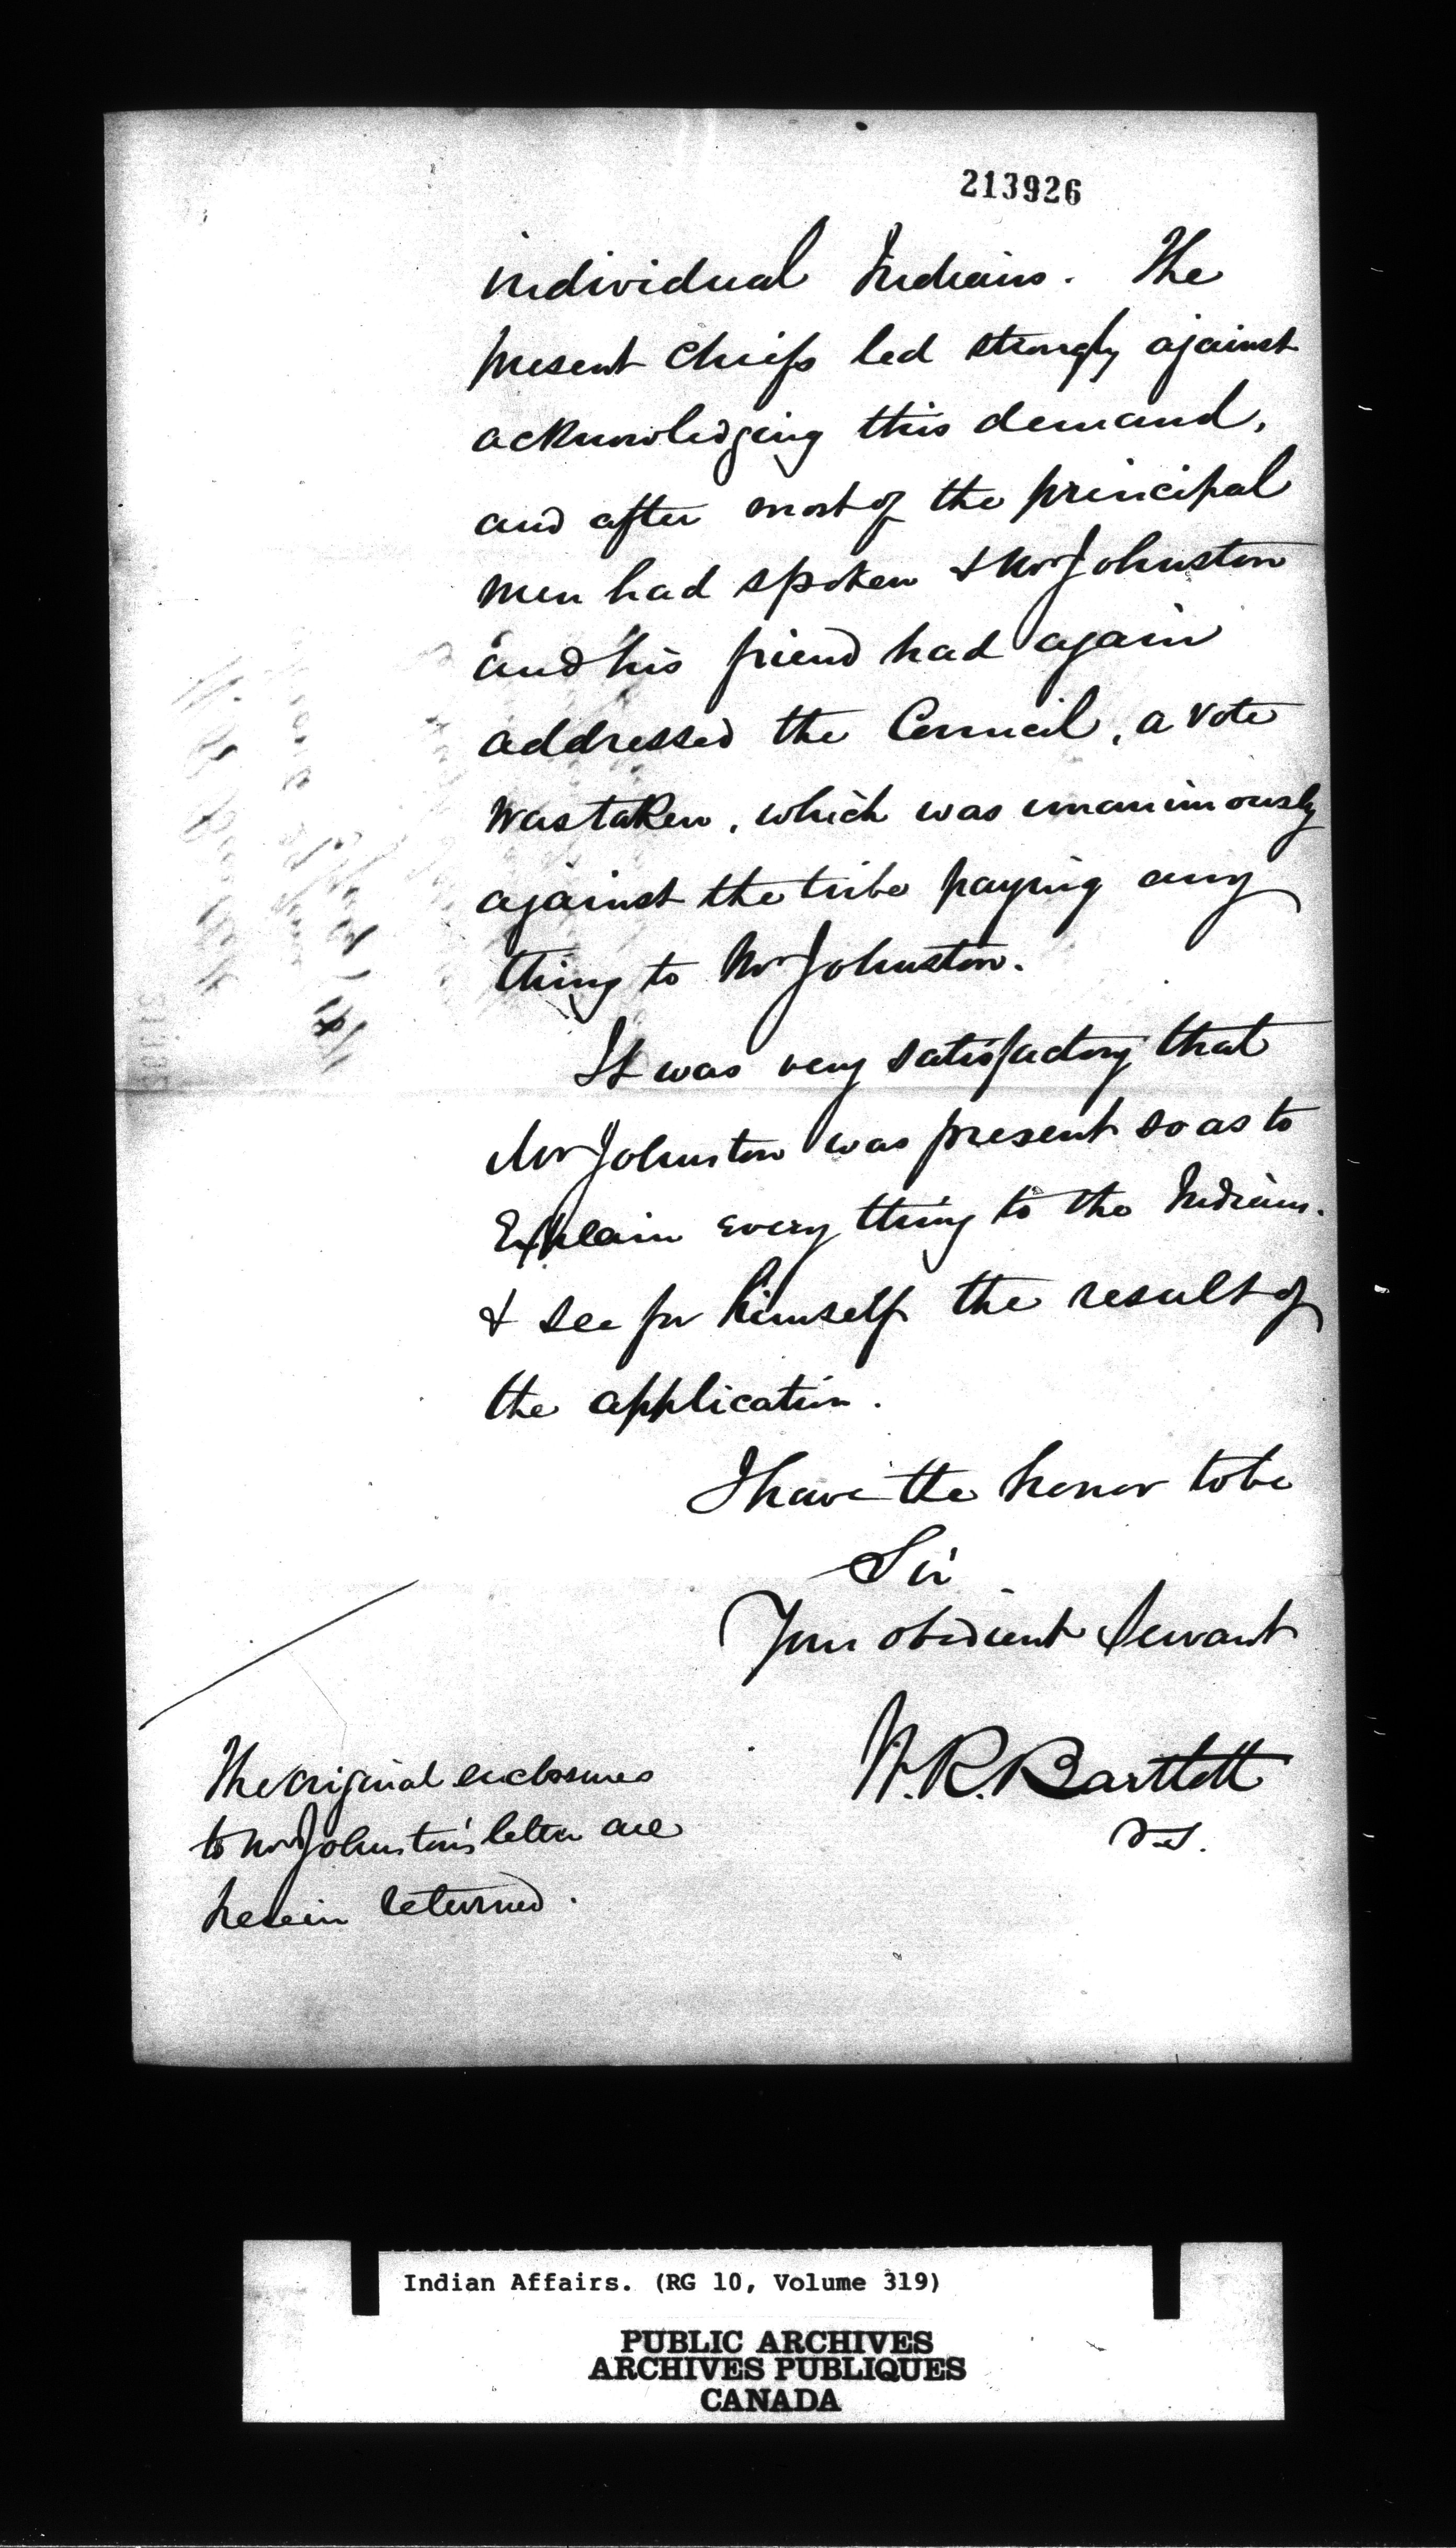 213926
individual Indians. The
present Chiefs led strongly against
acknowledging this demand,
and after most of the principal
men had spoken & Mr Johnston
and his friend had again
addressed the Council, a vote
was taken, which was unanimously
against the tribe paying any
thing to Mr Johnston.
It was very satisfactory that
Mr Johnston was present so as to
Explain every thing to the Indians.
& see for himself the result of
the application.
I have the honor to be
Sir
Your obedient Servant
W.R. Bartlett
The original enclosures
to Mr Johnston's letter are
herein returned.
Indian Affairs. (RG 10, Volume 319)
PUBLIC ARCHIVES
ARCHIVES PUBLIQUES
CANADA